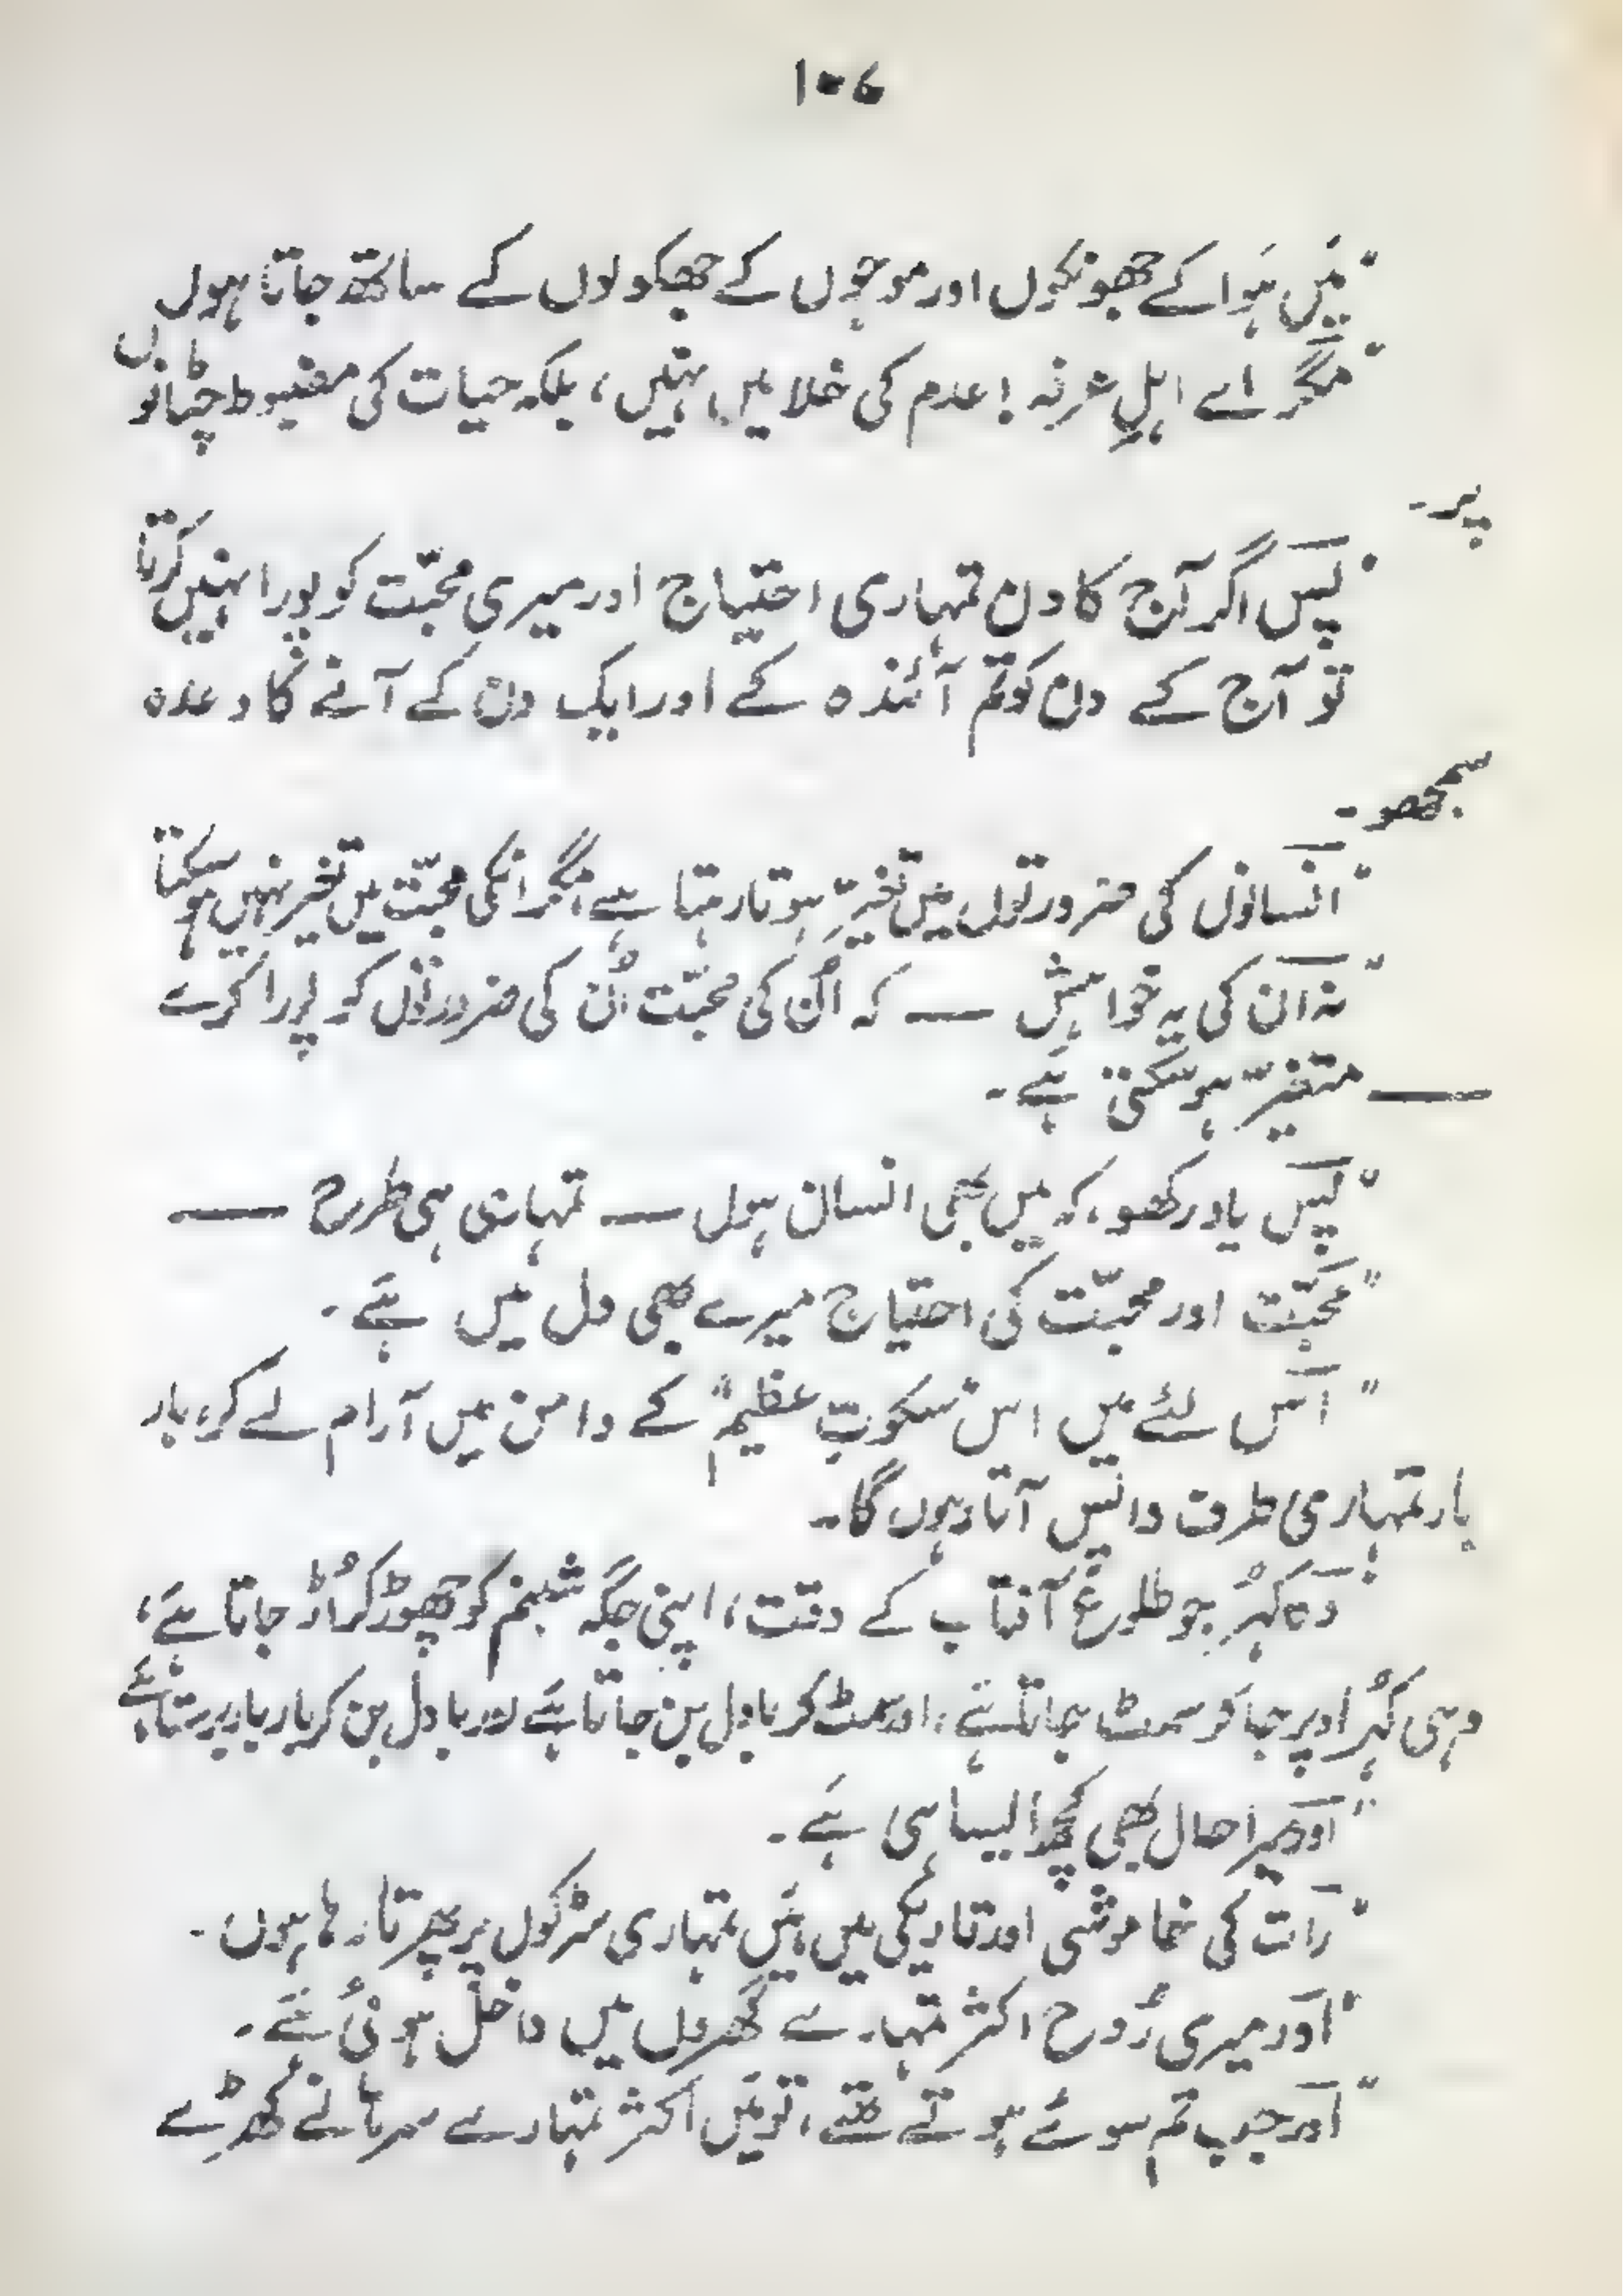 ۱۰۶
"مَیں ہَوا کے جھونکوں اور موجوں کے جھکولوں کے ساتھ جاتا ہوں
"مگر اے اہلِ عرفہ! عدم کی خلا میں نہیں، بلکہ حیات کی مضبوط چٹانوں
پر۔
"پس اگر آج کا دن تمہاری احتیاج اور میری محبّت کو پورا نہیں کرتا
تو آج کے دن کو تم آئندہ کے اور ایک دن کے آنے کا وعدہ
سمجھو۔
"انسانوں کی ضرورتوں میں تغیّر ہوتا رہتا ہے مگر انکی محبّت میں تغیر نہیں ہو سکتا
"نہ ان کی یہ خواہش — کہ اُن کی محبّت اُن کی ضرورتوں کو پورا کرے
— متغیّر ہو سکتی ہَے۔
"پس یاد رکھو، کہ میں بھی انسان ہوں — تمہاری ہی طرح —
"محبّت اور محبّت کی احتیاج میرے بھی دل میں ہَے۔
"اس لئے میں اس "سکوتِ عظیم" کے دامن میں آرام لے کر، بار
بار تمہاری طرف واپس آتا رہوں گا۔
"وہ کہُر جو طلوعِ آفتاب کے وقت، اپنی جگہ شبنم کو چھوڑ کر اُڑ جاتا ہَے،
وہی کہُر اوپر جا کر سمٹ جاتا ہَے، اور سمٹ کر بادل بن جاتا ہَے اور بادل بن کر بار بار برستا ہَے
"اور میرا حال بھی کچھ ایسا ہی ہَے۔
"رات کی خاموشی اور تاریکی میں مَیں تمہاری سڑکوں پر پھرتا رہا ہوں۔
"اور میری رُوح اکثر تمہارے گھروں میں داخل ہوئی ہَے۔
"اور جب تم سوئے ہوتے تھے، تو مَیں اکثر تمہارے سرہانے کھڑے